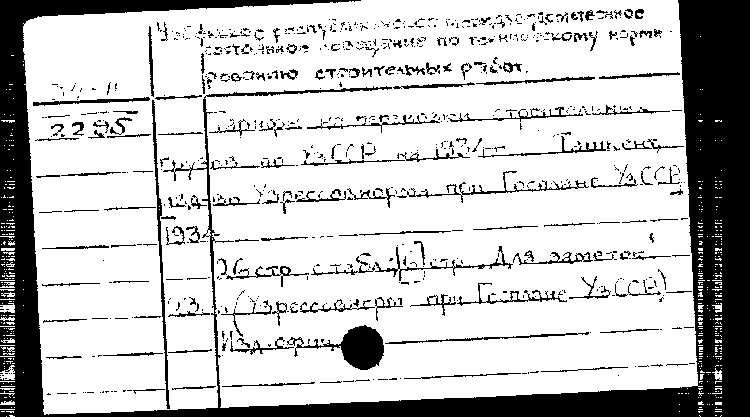 Узбекское республиканское междуведомственное
состоянное совещание по техническому норми
рованию строительных работ.
34-11
2295
Тарифы на перевозки строительных
грузов по УзССР на 1934 г. Ташкент,
изд-во Узрессовнормы при Госплане УзССР,
1934
26 стр. с табл.; [6] стр. "Для заметок"
(Узрессовнорм при Госплане УзССР)
Изд. офиц.